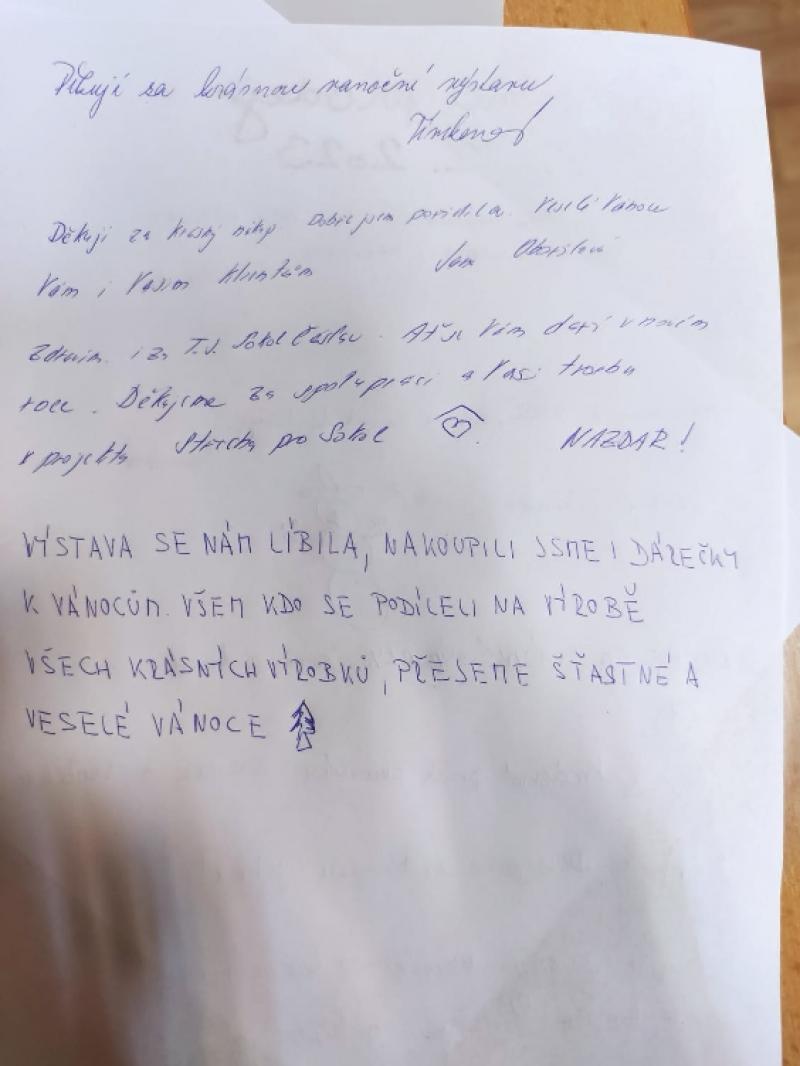 Děkuji za krásnou vanoční výstavu
Děkuji za krasný nákup Dobře jsem pořídila. Veselé Vánoce
Vám i Vašim klientům Jana
Zdravim i za T.J. Sokol Čáslav. Ať se Vám daří v novém
roce. Děkujeme za spolupráci a Vaši tvorbu
v projektu Střecha pro Sokol NAZDAR!
VÝSTAVA SE NÁM LÍBILA, NAKOUPILI JSME I DÁREČKY
K VÁNOCŮM. VŠEM KDO SE PODÍLELI NA VÍROBĚ
VŠECH KRÁSNÝCH VÍROBKŮ, PŘEJEME ŠŤASTNÉ A
VESELÉ VÁNOCE